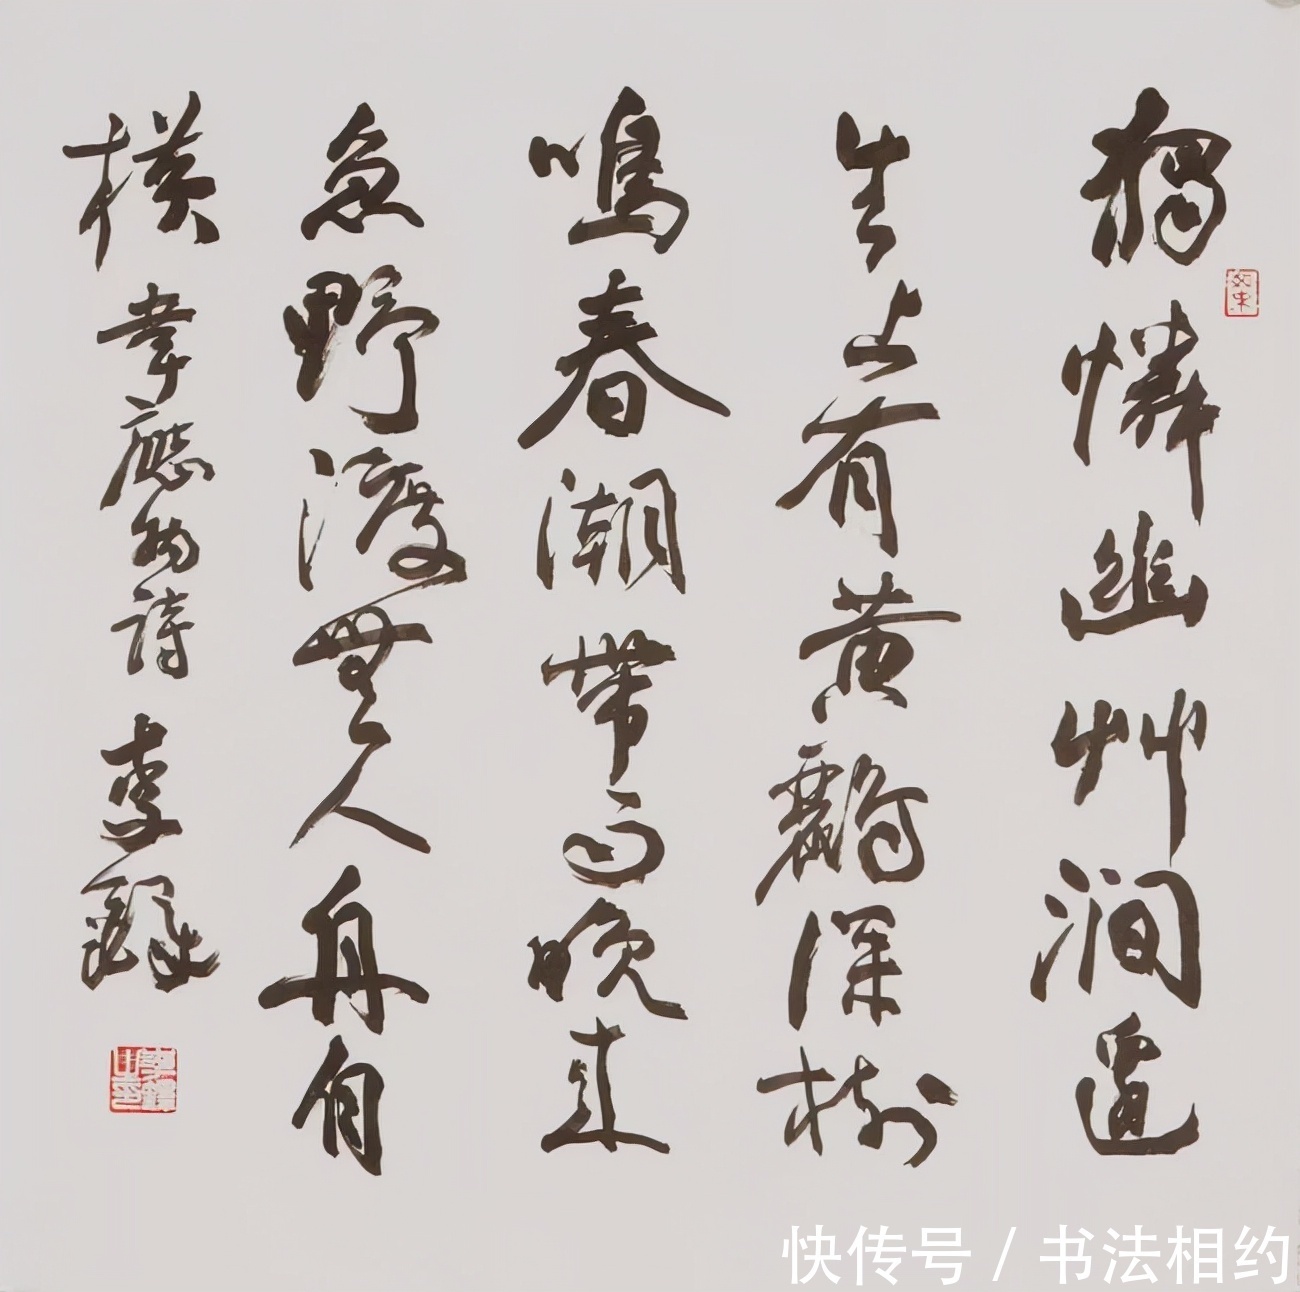 獨憐幽艸澗邊
生上有黃鸝深樹
鳴春潮帶雨晚來
急野渡無人舟自
橫 韋應物詩 李鐸
李鐸之印
快传号 / 书法相约